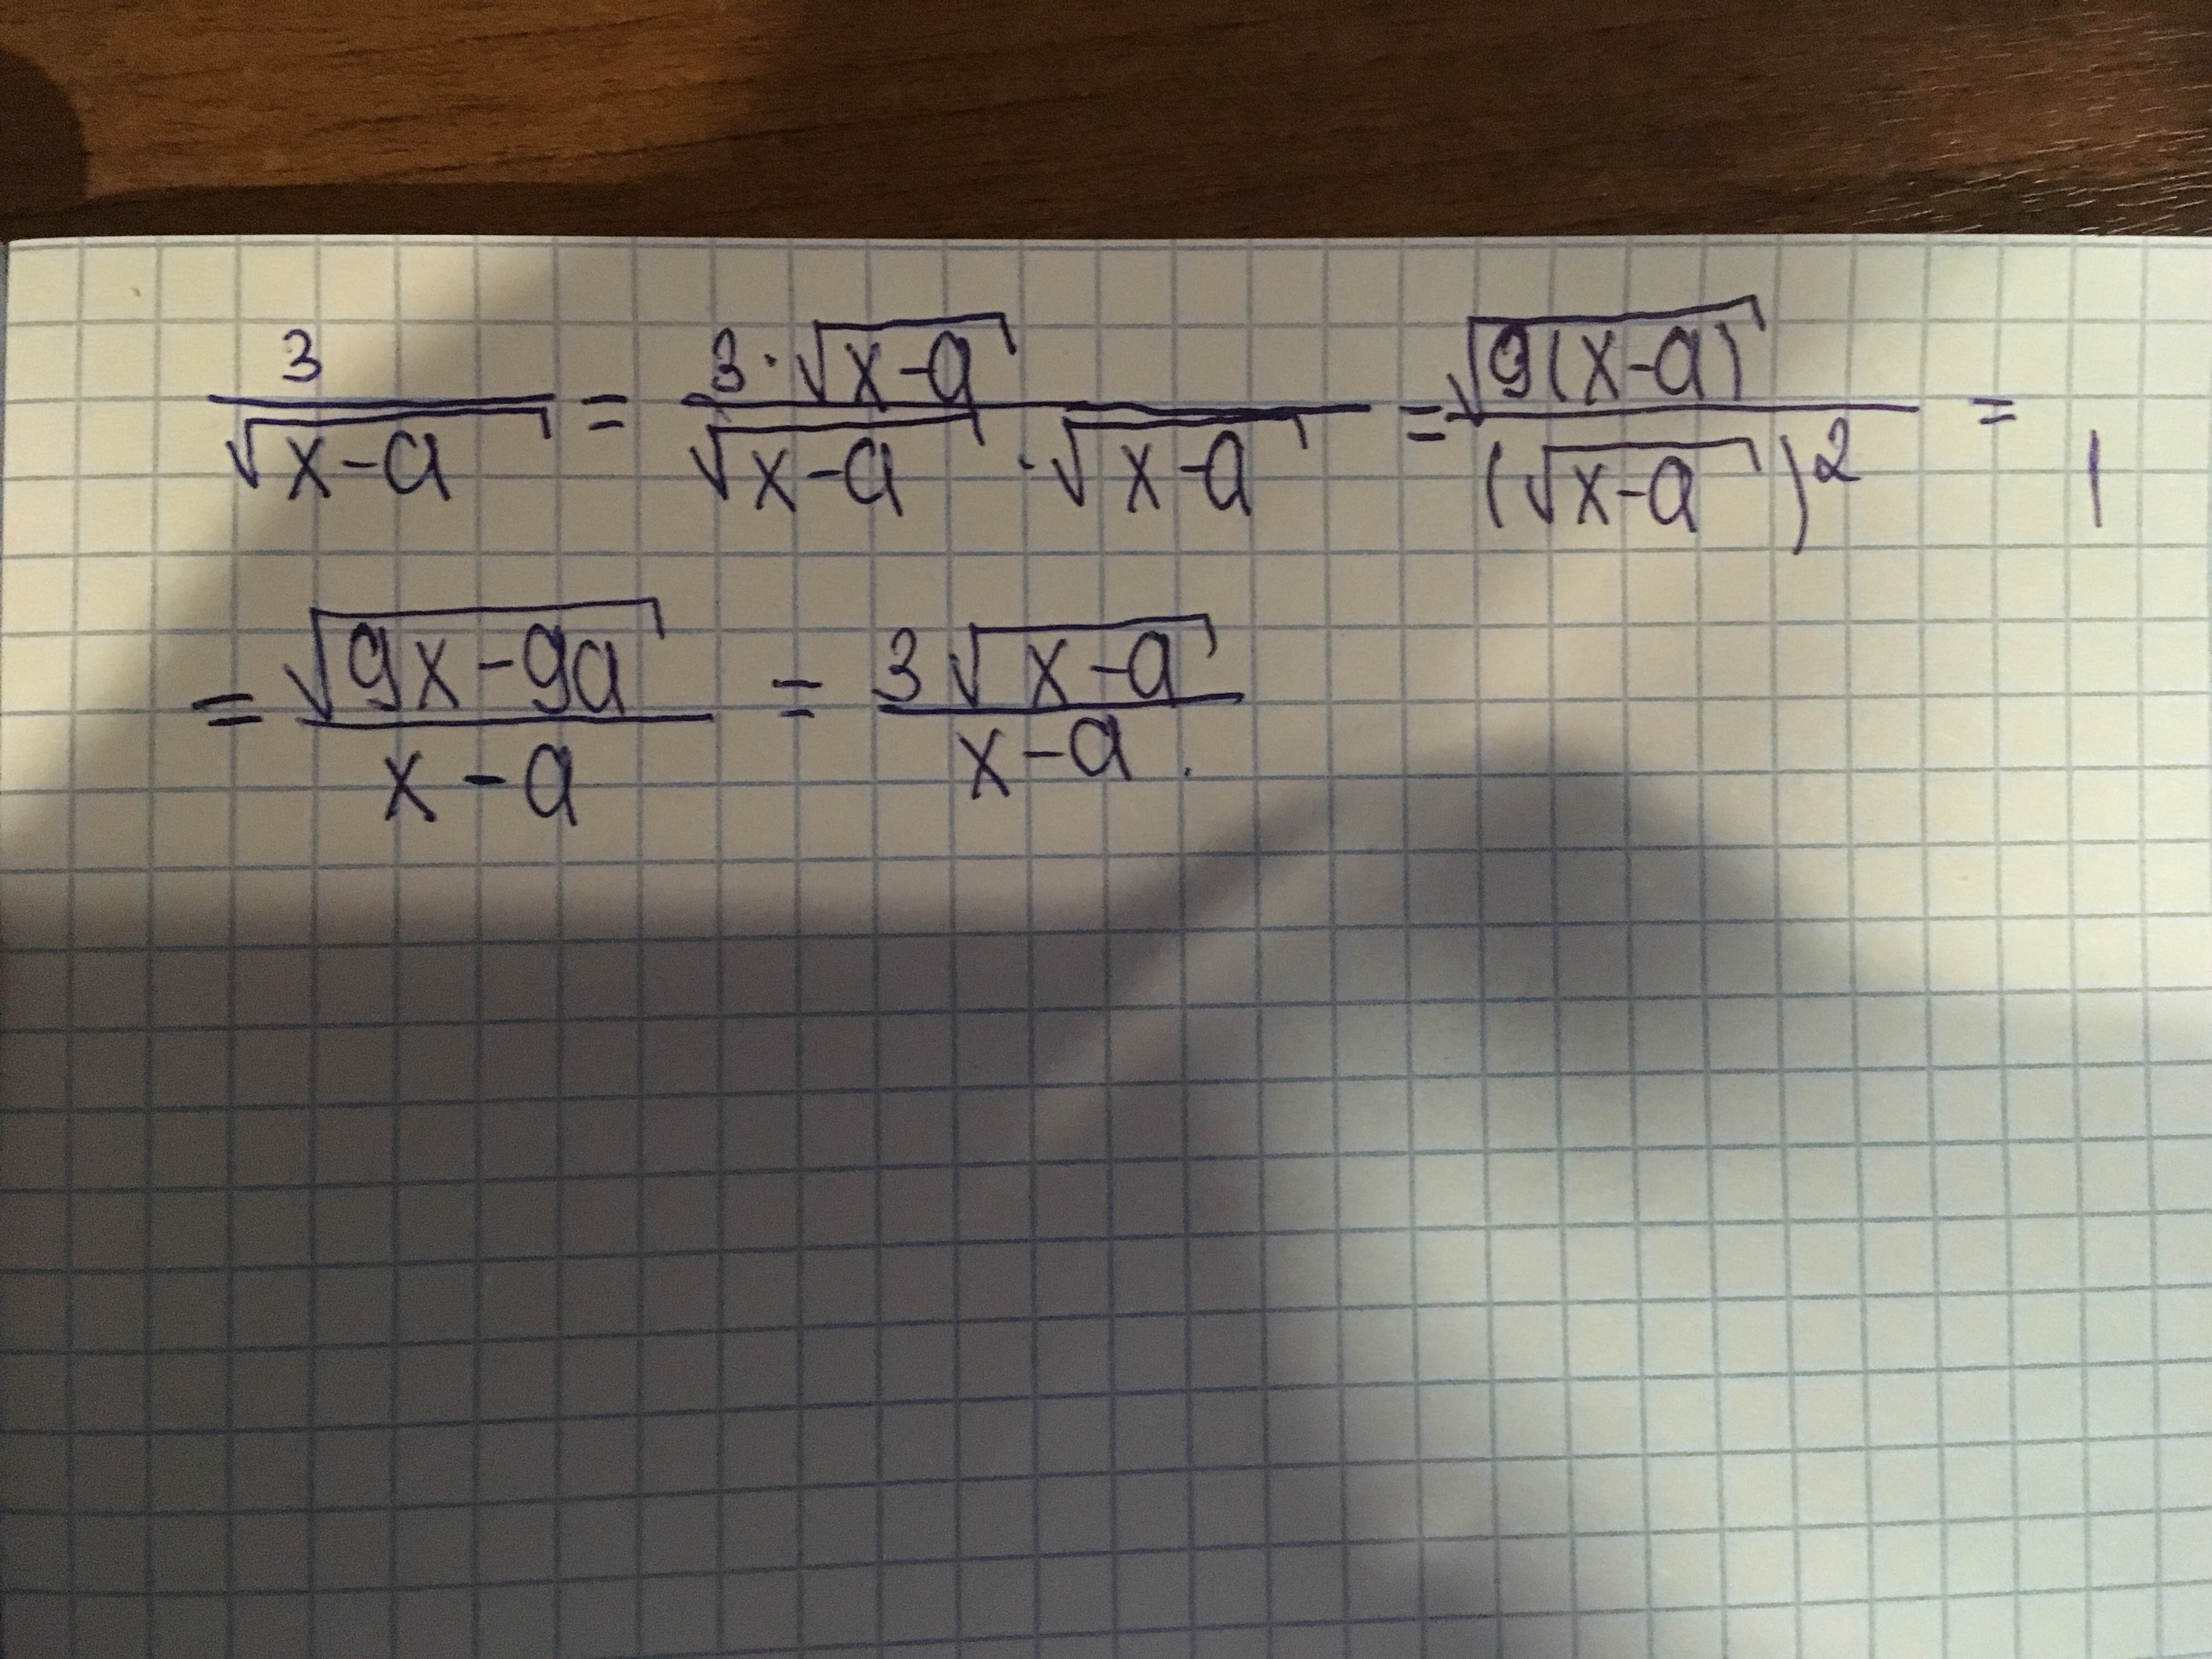 3/√(x-a) = 3·√(x-a)/(√(x-a)·√(x-a)) = √(9(x-a))/(√(x-a))² =
= √(9x-9a)/(x-a) = 3√(x-a)/(x-a).